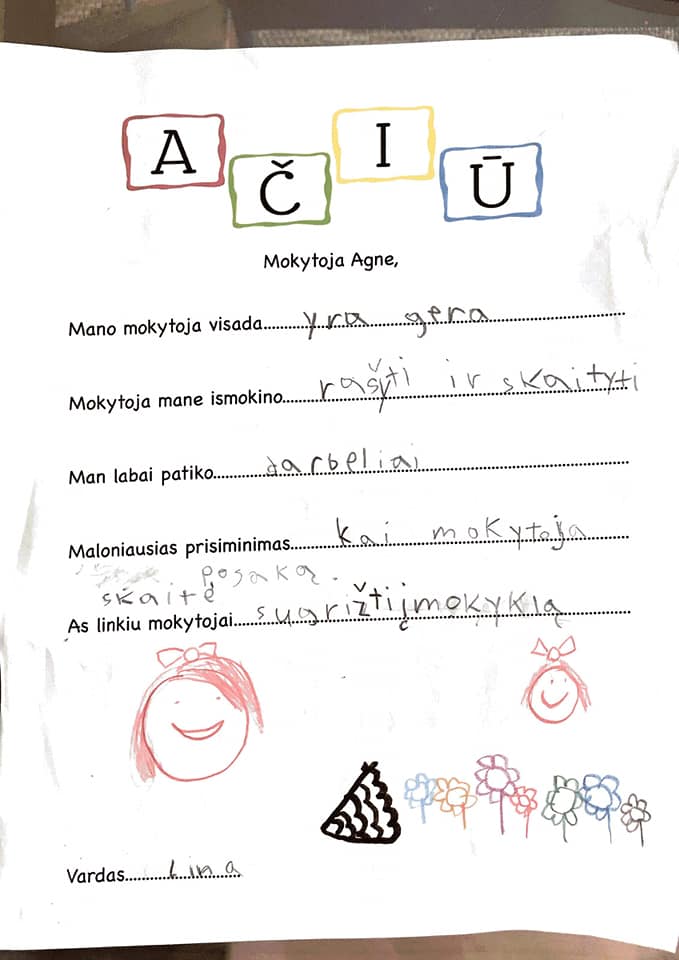 AČIŪ
Mokytoja Agne,
Mano mokytoja visada yra gera
Mokytoja mane ismokino rašyti ir skaityti
Man labai patiko darbeliai
Maloniausias prisiminimas kai mokytoja
skaitė posaką.
As linkiu mokytojai sugrižti į mokyklą
Vardas Lina